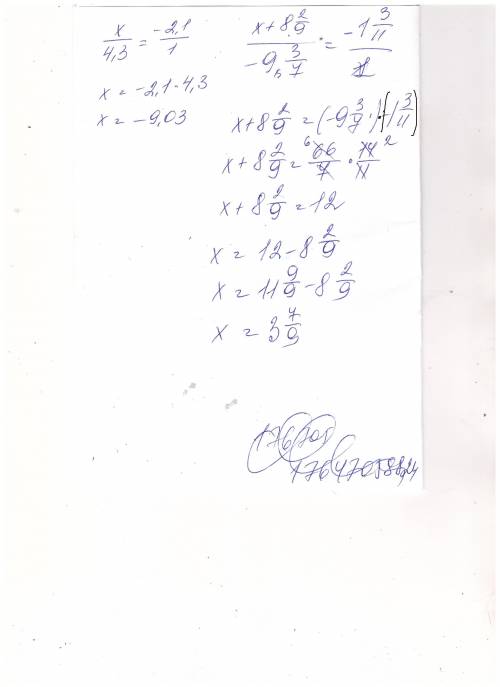 x/4,3 = -2,1/1
x = -2,1 · 4,3
x = -9,03
(x + 8 2/9)/(-9 3/7) = (-1 3/11)/1
x + 8 2/9 = (-9 3/7) · (-1 3/11)
x + 8 2/9 = 66/7 · 14/11 6 2
x + 8 2/9 = 12
x = 12 - 8 2/9
x = 11 9/9 - 8 2/9
x = 3 7/9